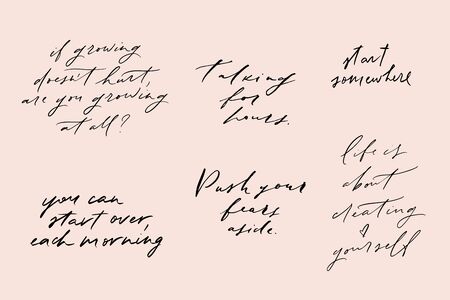 if growing
doesn't hurt,
are you growing
at all?
Talking
for
hours.
start
somewhere
you can
start over,
each morning
Push your
fears
aside.
life is
about
creating
yourself